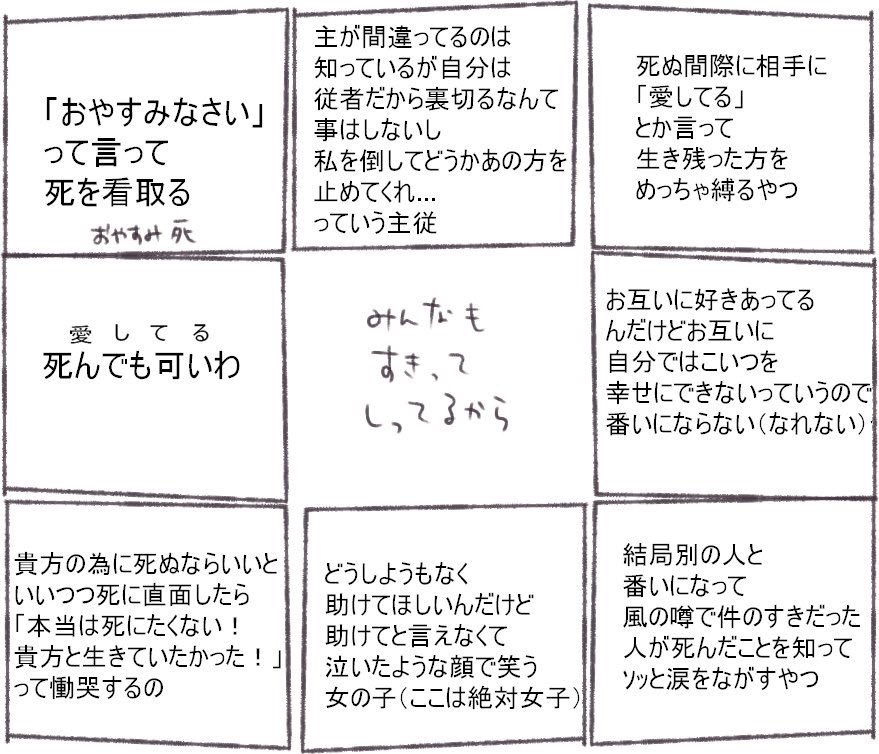 「おやすみなさい」
って言って
死を看取る
おやすみ 死
主が間違ってるのは
知っているが自分は
従者だから裏切るなんて
事はしないし
私を倒してどうかあの方を
止めてくれ…
っていう主従
死ぬ間際に相手に
「愛してる」
とか言って
生き残った方を
めっちゃ縛るやつ
愛してる
死んでも可いわ
みんなも
すきって
しってるから
お互いに好きあってる
んだけどお互いに
自分ではこいつを
幸せにできないっていうので
番いにならない(なれない)
貴方の為に死ぬならいいと
いいつつ死に直面したら
「本当は死にたくない!
貴方と生きていたかった!」
って慟哭するの
どうしようもなく
助けてほしいんだけど
助けてと言えなくて
泣いたような顔で笑う
女の子(ここは絶対女子)
結局別の人と
番いになって
風の噂で件のすきだった
人が死んだことを知って
ソッと涙をながすやつ